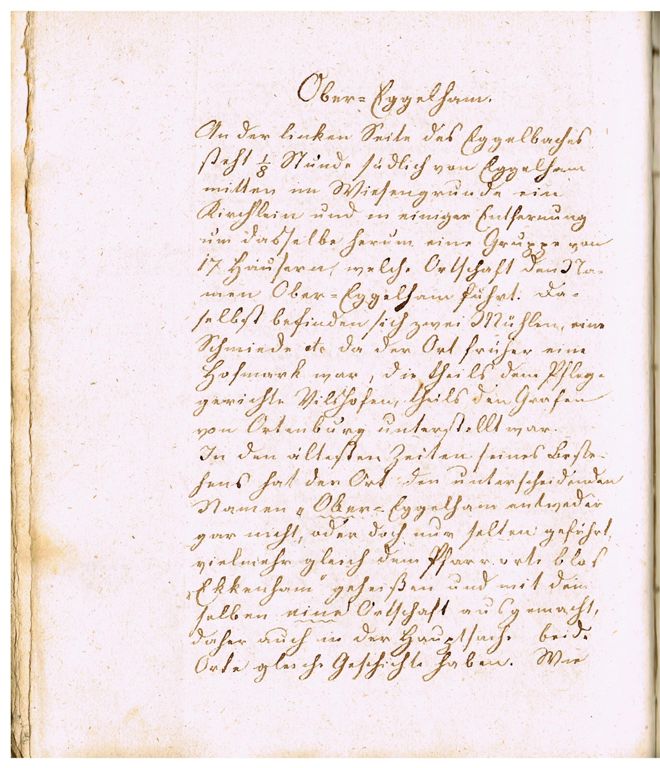 Ober-Eggelham.
An der linken Seite des Eggelbaches
steht 1/8 Stunde südlich von Eggelham
mitten im Wiesengrunde ein
Kirchlein und in einiger Entfernung
um dasselbe herum eine Gruppe von
17 Häusern, welche Ortschaft den Na-
men Ober-Eggelham führt. Da-
selbst befinden sich zwei Mühlen, eine
Schmiede etc da der Ort früher eine
Hofmark war, die theils dem Pfleg-
gerichte Vilshofen, theils den Grafen
von Ortenburg unterstellt war.
In den ältesten Zeiten seines Beste-
hens hat der Ort den unterscheidenden
Namen „Ober-Eggelham entweder
gar nicht, oder doch nur selten geführt,
vielmehr gleich dem Pfarrorte blos
„Ekkenham" geheißen und mit dem
selben eine Ortschaft ausgemacht,
daher auch in der Hauptsache beide
Orte gleiche Geschichte haben. Wie